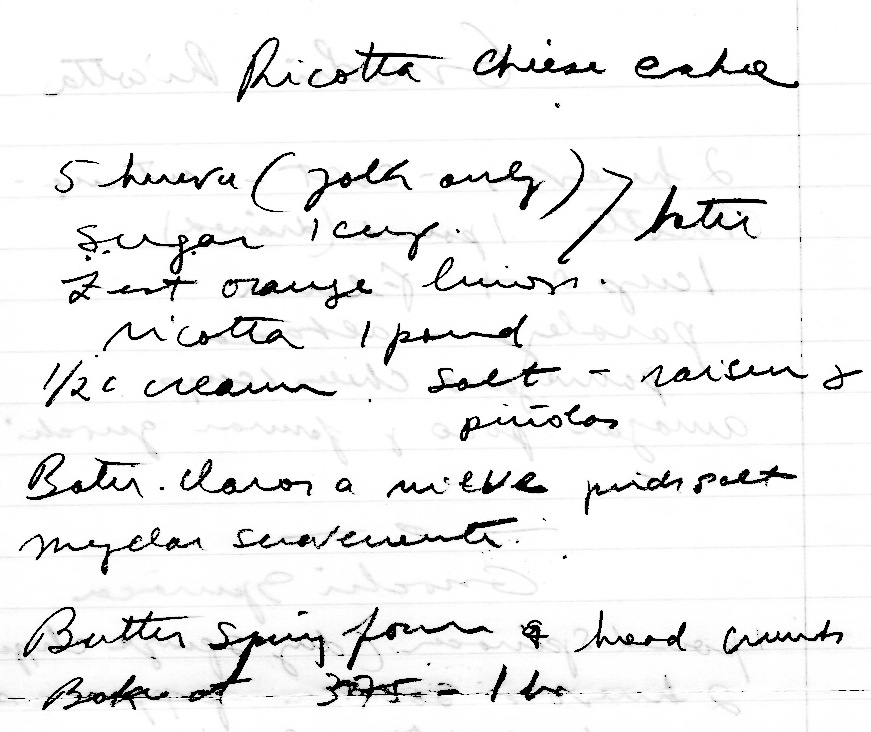 Ricotta cheese cake
5 huevos (yolk only) > batir
sugar 1 cup.
Zest orange limon.
ricotta 1 pound
1/2 c cream. salt - raisin y
piñolas
Batir. claras a nieve pinch salt
mezclar suavemente.
Butter spring form & bread crumbs
Bake at 375 - 1 hr